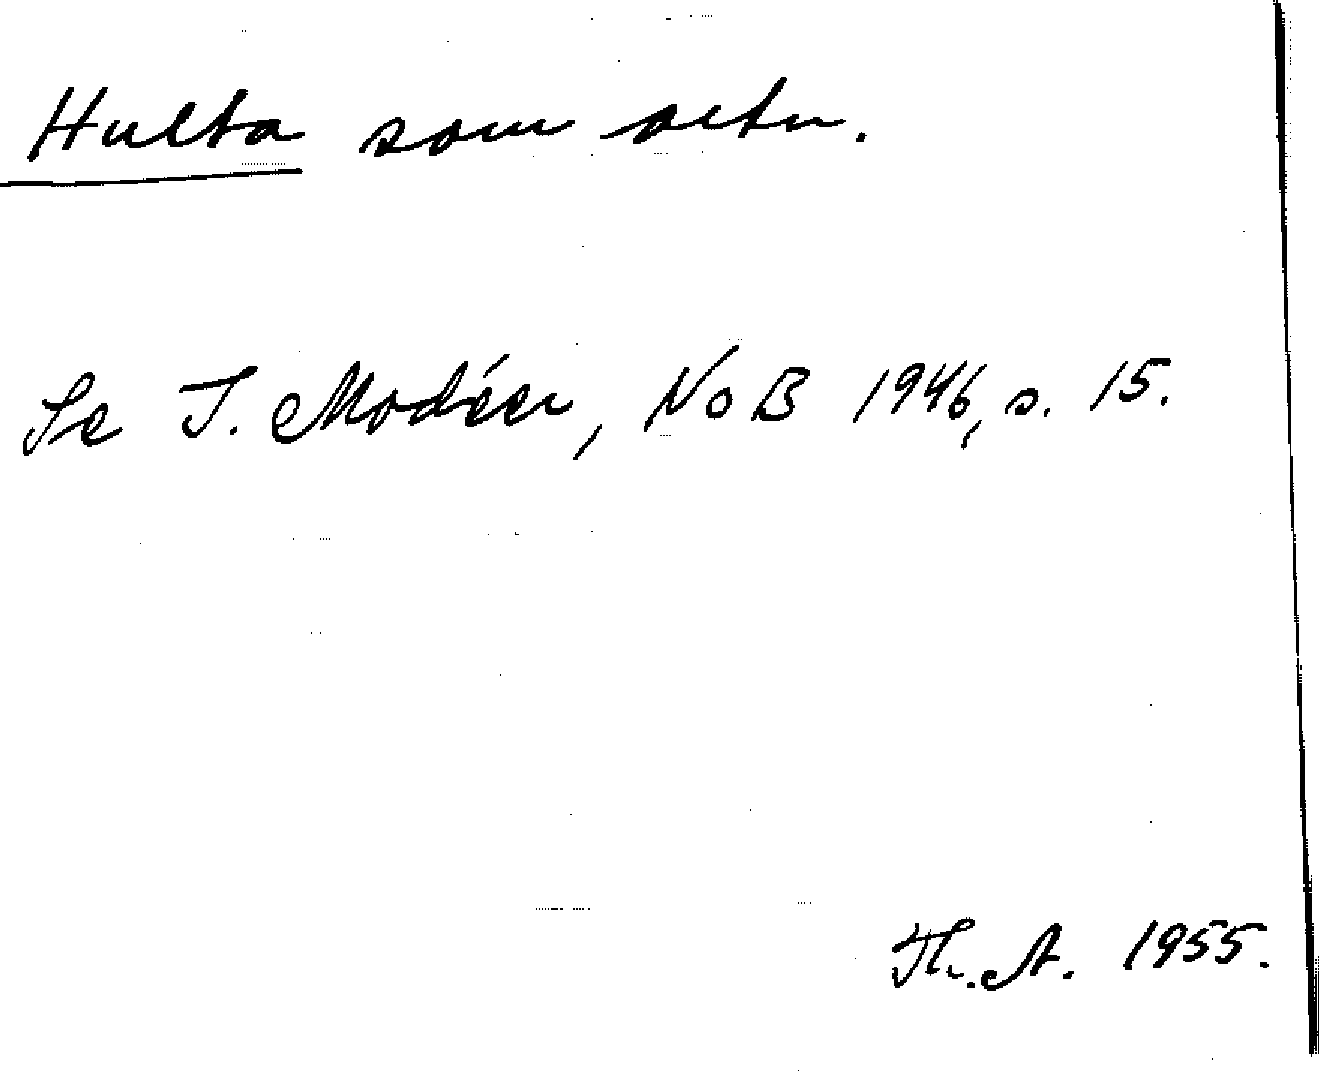 Hulta som ortn.
Se I. Modéer, NoB 1946, s. 15.
Th. A. 1955.